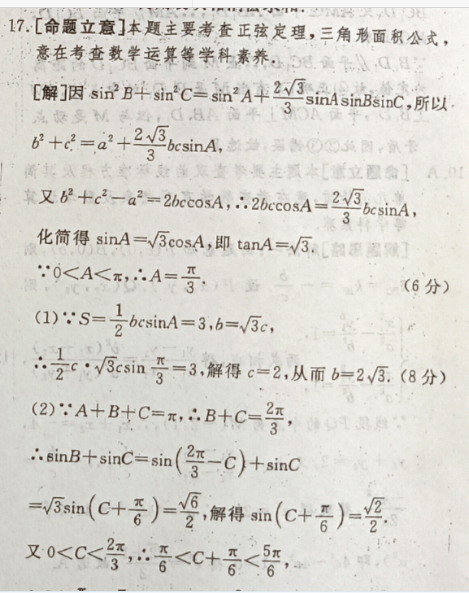 17.[命题立意]本题主要考查正弦定理,三角形面积公式,
意在考查数学运算等学科素养.
[解]因 sin²B+sin²C=sin²A+\frac{2\sqrt{3}}{3}sinAsinBsinC,所以
b²+c²=a²+\frac{2\sqrt{3}}{3}bcsinA,
又 b²+c²-a²=2bccosA,∴2bccosA=\frac{2\sqrt{3}}{3}bcsinA,
化简得 sinA=√3cosA,即 tanA=√3.
∵0<A<π,∴A=\frac{π}{3}. (6 分)
(1)∵S=\frac{1}{2}bcsinA=3,b=√3c,
∴\frac{1}{2}c·√3csin\frac{π}{3}=3,解得 c=2,从而 b=2√3. (8 分)
(2)∵A+B+C=π,∴B+C=\frac{2π}{3},
∴sinB+sinC=sin(\frac{2π}{3}-C)+sinC
=√3sin(C+\frac{π}{6})=\frac{\sqrt{6}}{2},解得 sin(C+\frac{π}{6})=\frac{\sqrt{2}}{2}.
又 0<C<\frac{2π}{3},∴\frac{π}{6}<C+\frac{π}{6}<\frac{5π}{6},